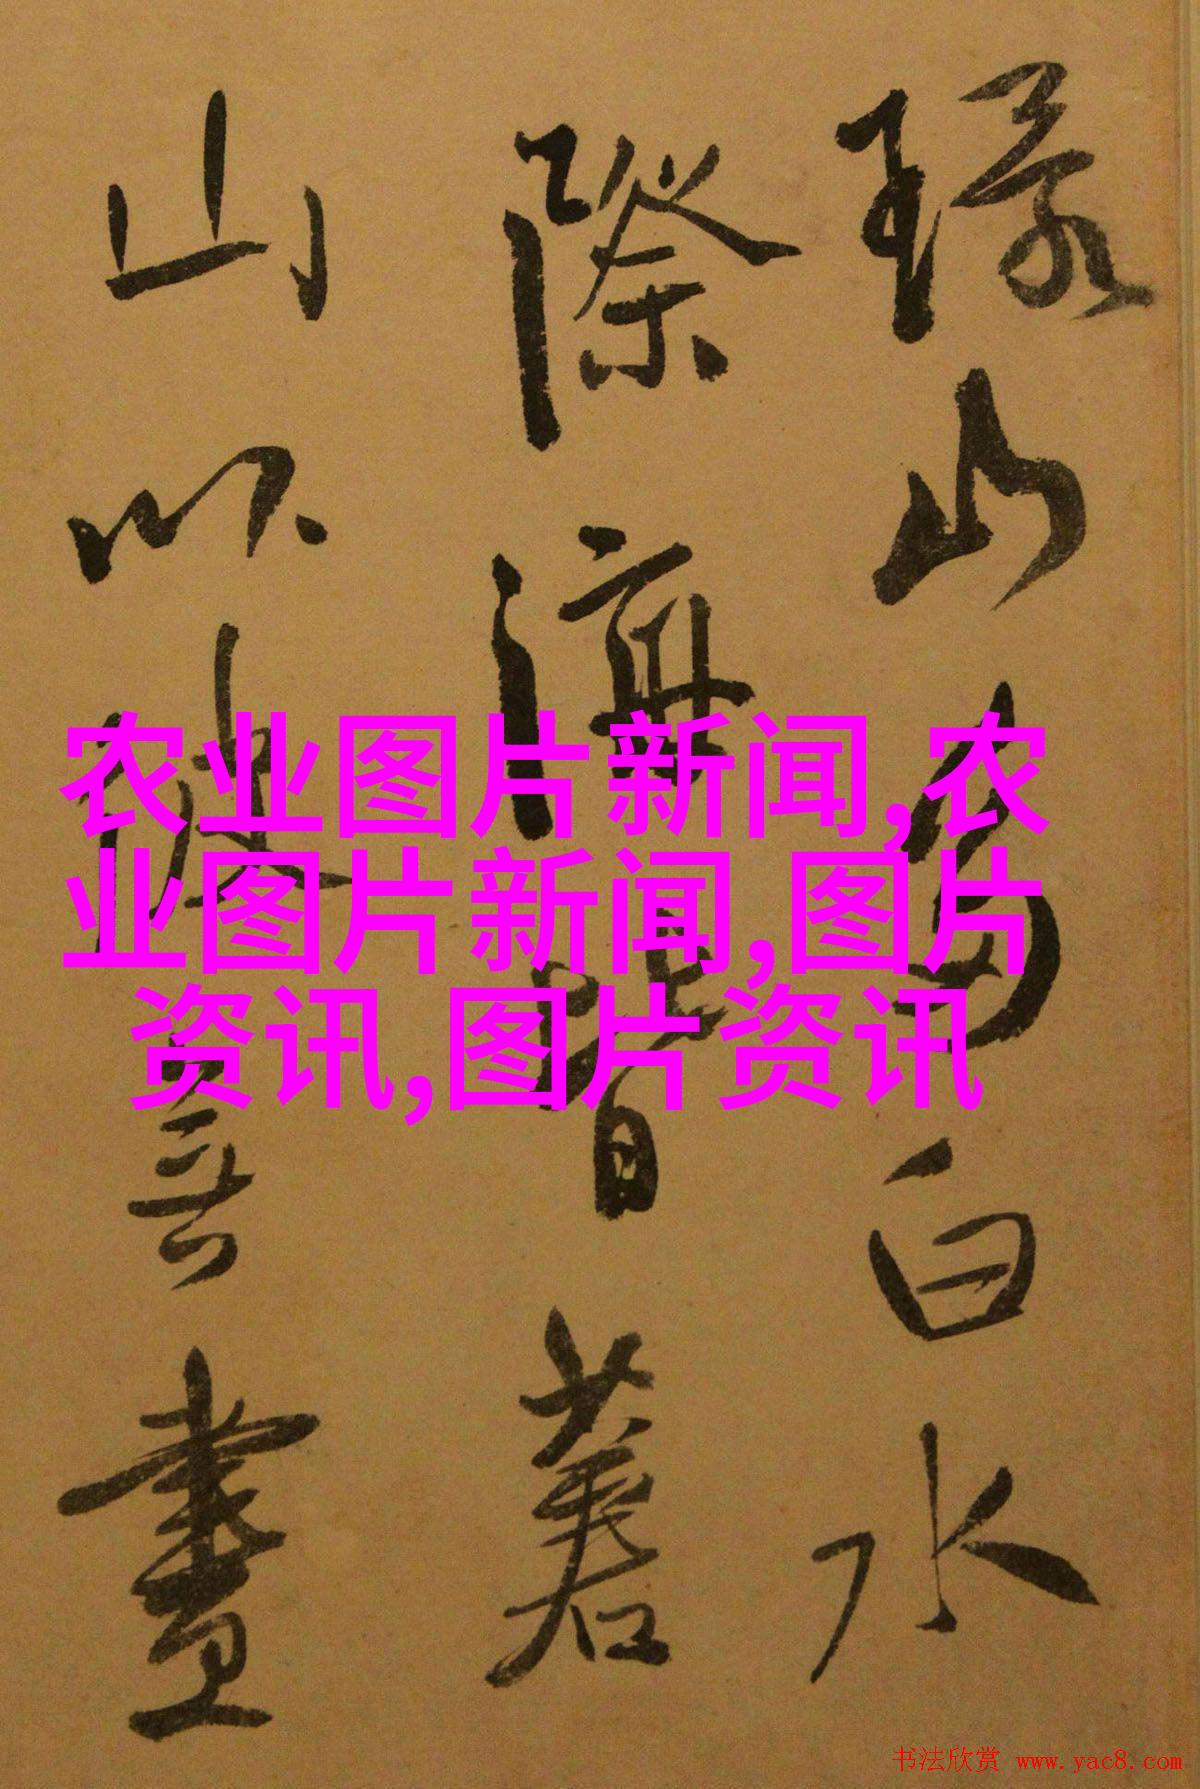 山白水
際海皆著
山以畫
农业图片新闻,农
业图片新闻,图片
资讯,图片资讯
书法欣赏 www.yac8.com